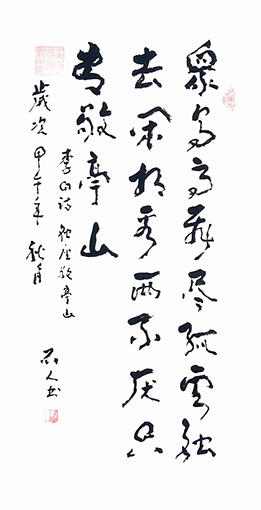 眾鳥高飛盡孤雲獨
去閑相看兩不厭只
有敬亭山
李白詩獨坐敬亭山
歲次甲午年秋月
人书